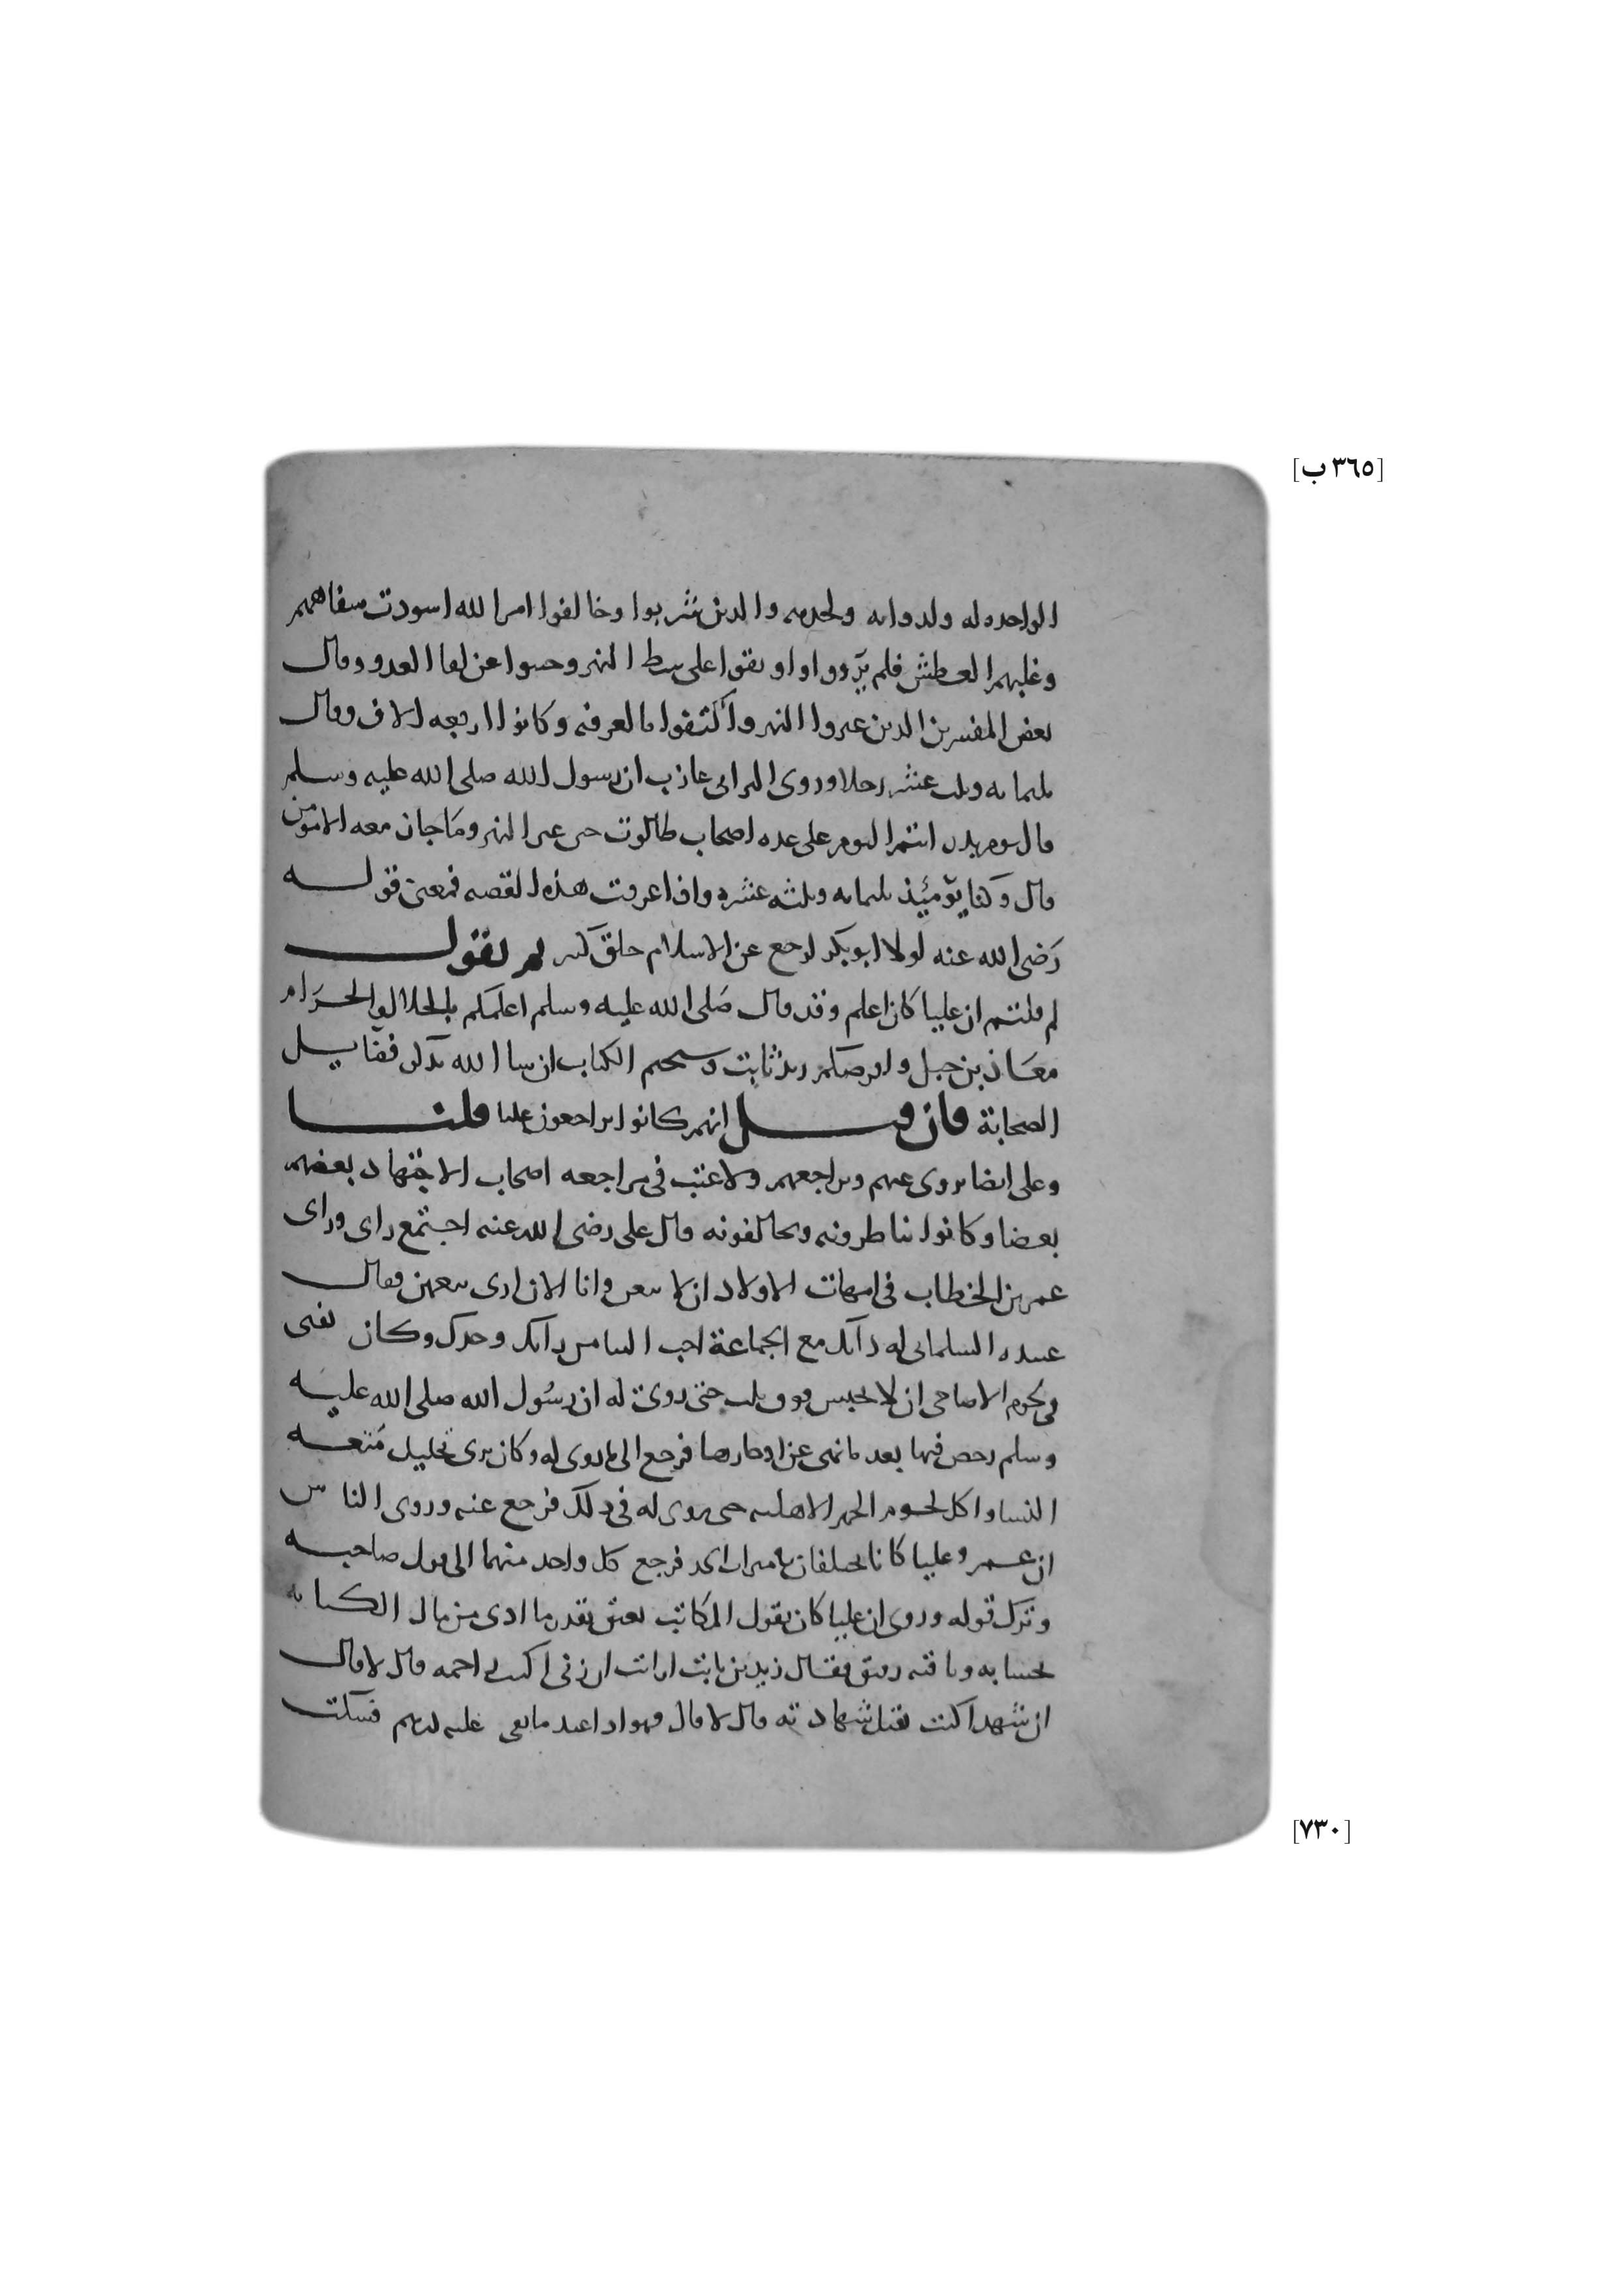 [٣٦٥ ب]
الواحده له ولدوابه ولخدمه والذين شربوا وخالفوا امر الله اسودت شفاههم
وغلبهم العطش فلم يرووا وبقوا على شط النهر وجبنوا عن لقا العدو وقال
بعض المفسرين الذين عبروا النهر واكتفوا بالغرفه وكانوا اربعه الاف وقال
ثلثمايه وثلث عشر رجلا وروى البرا بن عازب ان رسول الله صلى الله عليه وسلم
قال يوم بدر انتم اليوم على عده اصحاب طالوت حين عبر النهر وما جاز معه الا مومن
قال وكنا يومئذ ثلثمايه وثلثه عشر واذا عرفت هذه القصه فمعنى قوله
رضى الله عنه لولا ابو بكر لرجع عن الاسلام خلق كثير ثم نقول
لم قلتم ان عليا كان اعلم وقد قال صلى الله عليه وسلم اعلمكم بالحلال والحرام
معاذ بن جبل وافرضكم زيد بن ثابت وسنختم الكتاب ان شا الله بذكر فضايل
الصحابة فان قيل انهم كانوا يراجعون عليا قلنا
وعلى ايضا يروى عنهم ويراجعهم ولا عتب فى مراجعه اصحاب الاجتهاد بعضهم
بعضا وكانوا يناظرونه ويخالفونه قال على رضى الله عنه اجتمع راى وراى
عمر بن الخطاب فى امهات الاولاد ان لا يبعن وانا الان ارى بيعهن فقال
عبيده السلمانى له رايك مع الجماعة احب الينا من رايك وحدك وكان يفتى
فى لحوم الاضاحى ان لا تحبس فوق ثلث حتى روى له ان رسول الله صلى الله عليه
وسلم رخص فيها بعد ما نهى عن ادخارها فرجع الى ما روى له وكان يرى تحليل متعه
النسا واكل لحوم الحمر الاهليه حتى روى له فى ذلك فرجع عنه وروى الناس
ان عمر وعليا كانا يختلفان فرجع كل واحد منهما الى قول صاحبه
وترك قوله وروى ان عليا كان يقول المكاتب يعتق بقدر ما ادى من مال الكتابه
بحسابه وباقيه رقيق فقال زيد بن ثابت ارايت ان زنى اكنت راجمه قال لا قال
ان شهد اكنت تقبل شهادته قال لا قال فهو اذا عبد ما بقى عليه درهم فسكت
[٧٣٠]